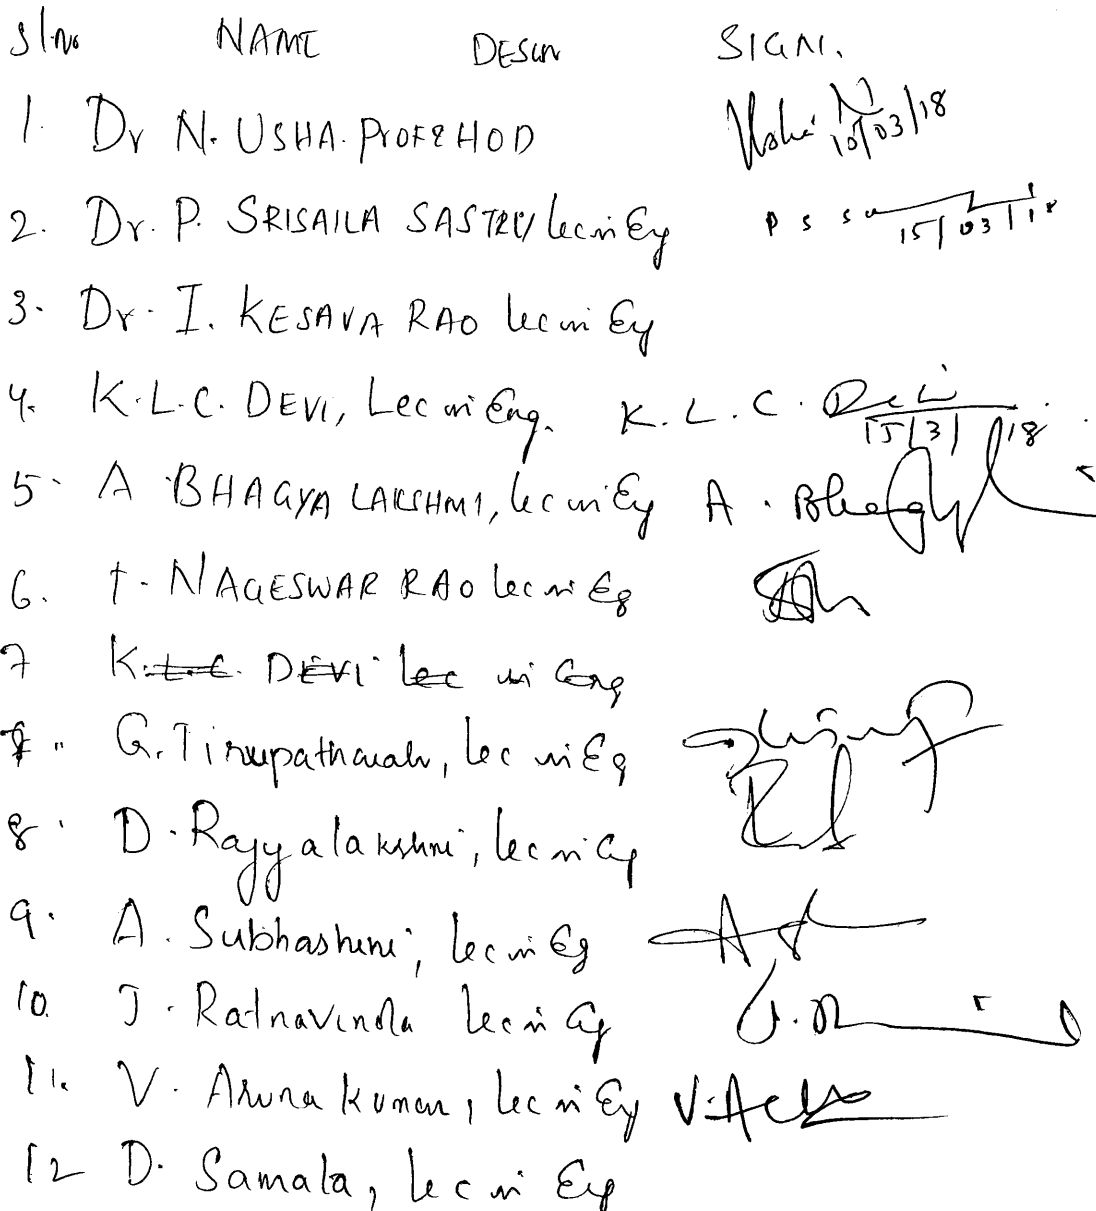 Sl.No NAME DESGN SIGN.
1. Dr N. USHA. PROF & HOD Usha N 15/03/18
2. Dr. P. SRISAILA SASTRY lec in Eg P S S 15/03/18
3. Dr. I. KESAVA RAO lec in Eg
4. K.L.C. DEVI, Lec in Eng. K.L.C. Devi 15/3/18
5. A BHAGYA LAKSHMI, lec in Eg A. Bhagya
6. T. NAGESWAR RAO lec in Eg
7 K.L.C. DEVI lec in Eng
7. G. Tirupathaiah, lec in Eg
8. D. Rajyalakshmi, lec in Eg
9. A. Subhashini, lec in Eg
10. J. Ratnavinda lec in Eg
11. V. Aruna Kumari, lec in Eg
12 D. Samala, lec in Eg